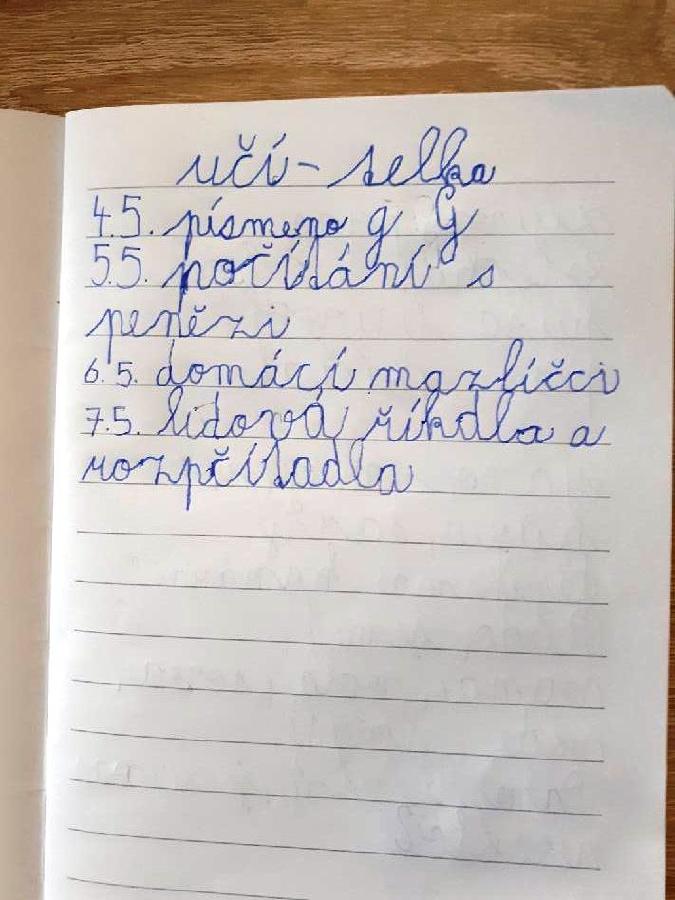 učí-telka
4.5. písmeno g G
5.5. počítání s
penězi
6.5. domácí mazlíčci
7.5. lidová říkdla a
rozpčítadla